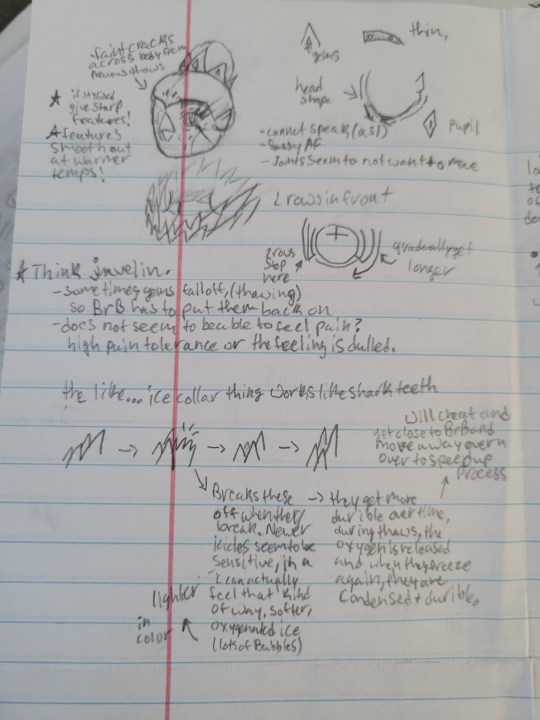 faint cracks
across body from
previous thaws
★ if stylized
give sharp
features!
★ features
smooth out
at warmer
temps!
gems
thin,
head
shape
Pupil
- cannot speak, (asl)
- Sassy AF
- Joints seem to not want to move
2 rows in front
2 rows
stop
here
gradually get
longer
★ Think javelin.
- sometimes gems fall off, (thawing)
so BrB has to put them back on
- does not seem to be able to feel pain?
high pain tolerance or the feeling is dulled.
the like... ice collar thing works like shark teeth
Will cheat and
get close to BrB and
move away over n
over to speed up
process
Breaks these
off when they
break. Newer
icicles seem to be
sensitive, in a
I can actually
feel that kind
of way, softer,
oxygenated ice
(lots of Bubbles)
lighter
in
color
→ they get more
durible over time,
during thaws, the
oxygen is released
and when they freeze
again, they are
condensed + durible.